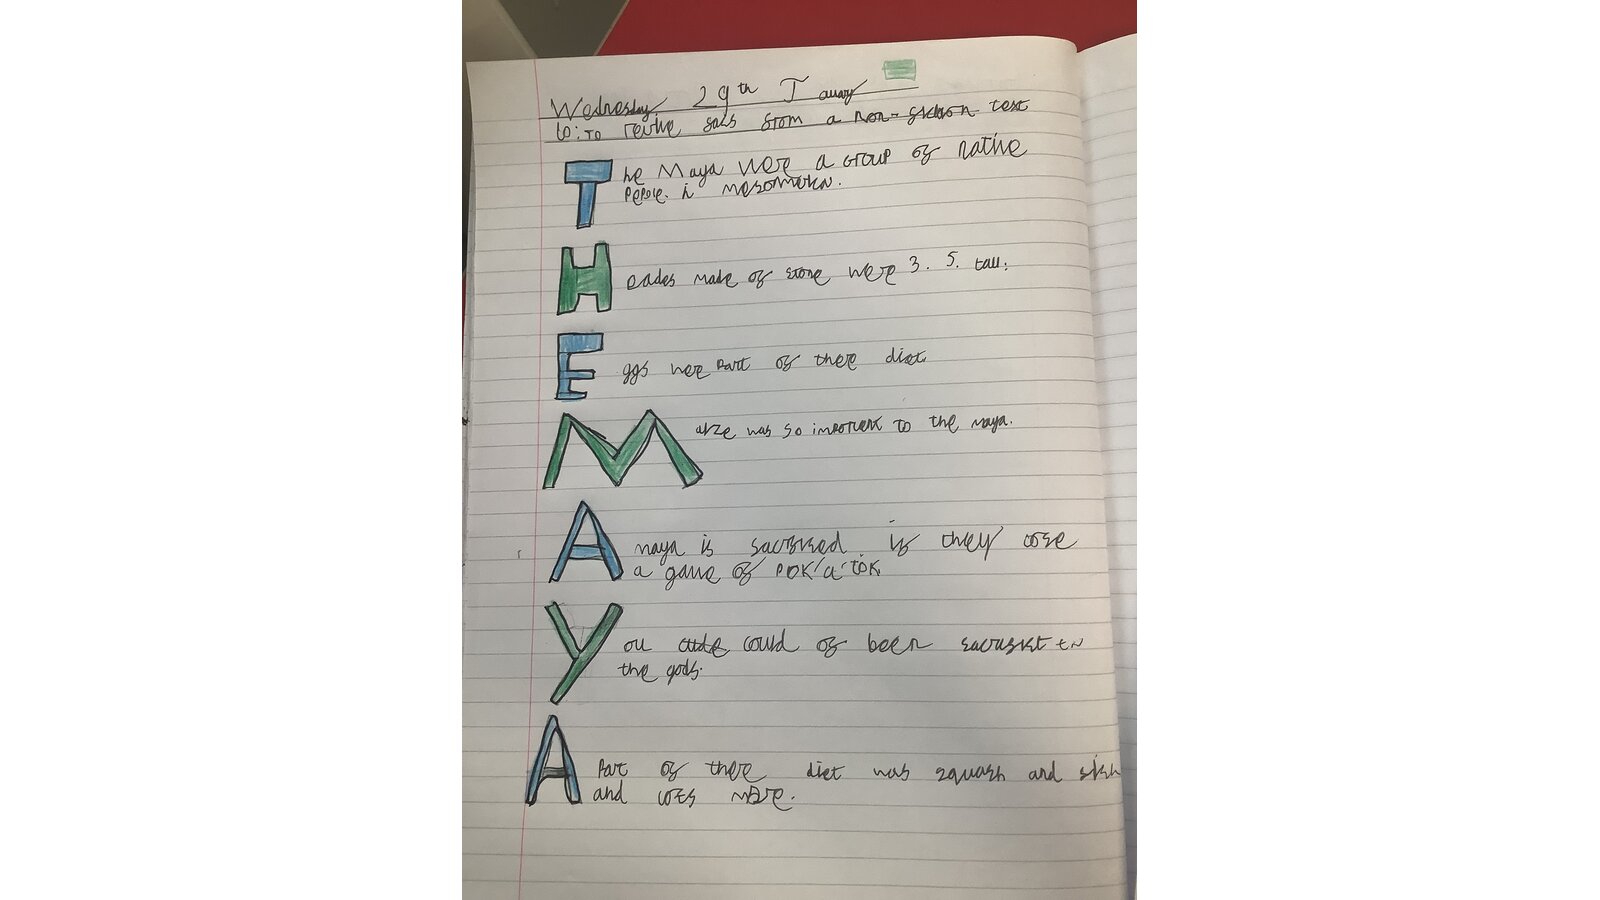 Wednesday 29th January
lo: To retive facts from a non-fiction text
The Maya were a group of native
People. in mesomerca.
Heades made of stone were 3. 5. tall.
Eggs were Part of there diet.
Maize was so importent to the maya.
A maya is sacrifised. if they lose
a game of POK'a'TOK
You could of been to
the gods.
A Part of there diet was squash and fish
and lots more.